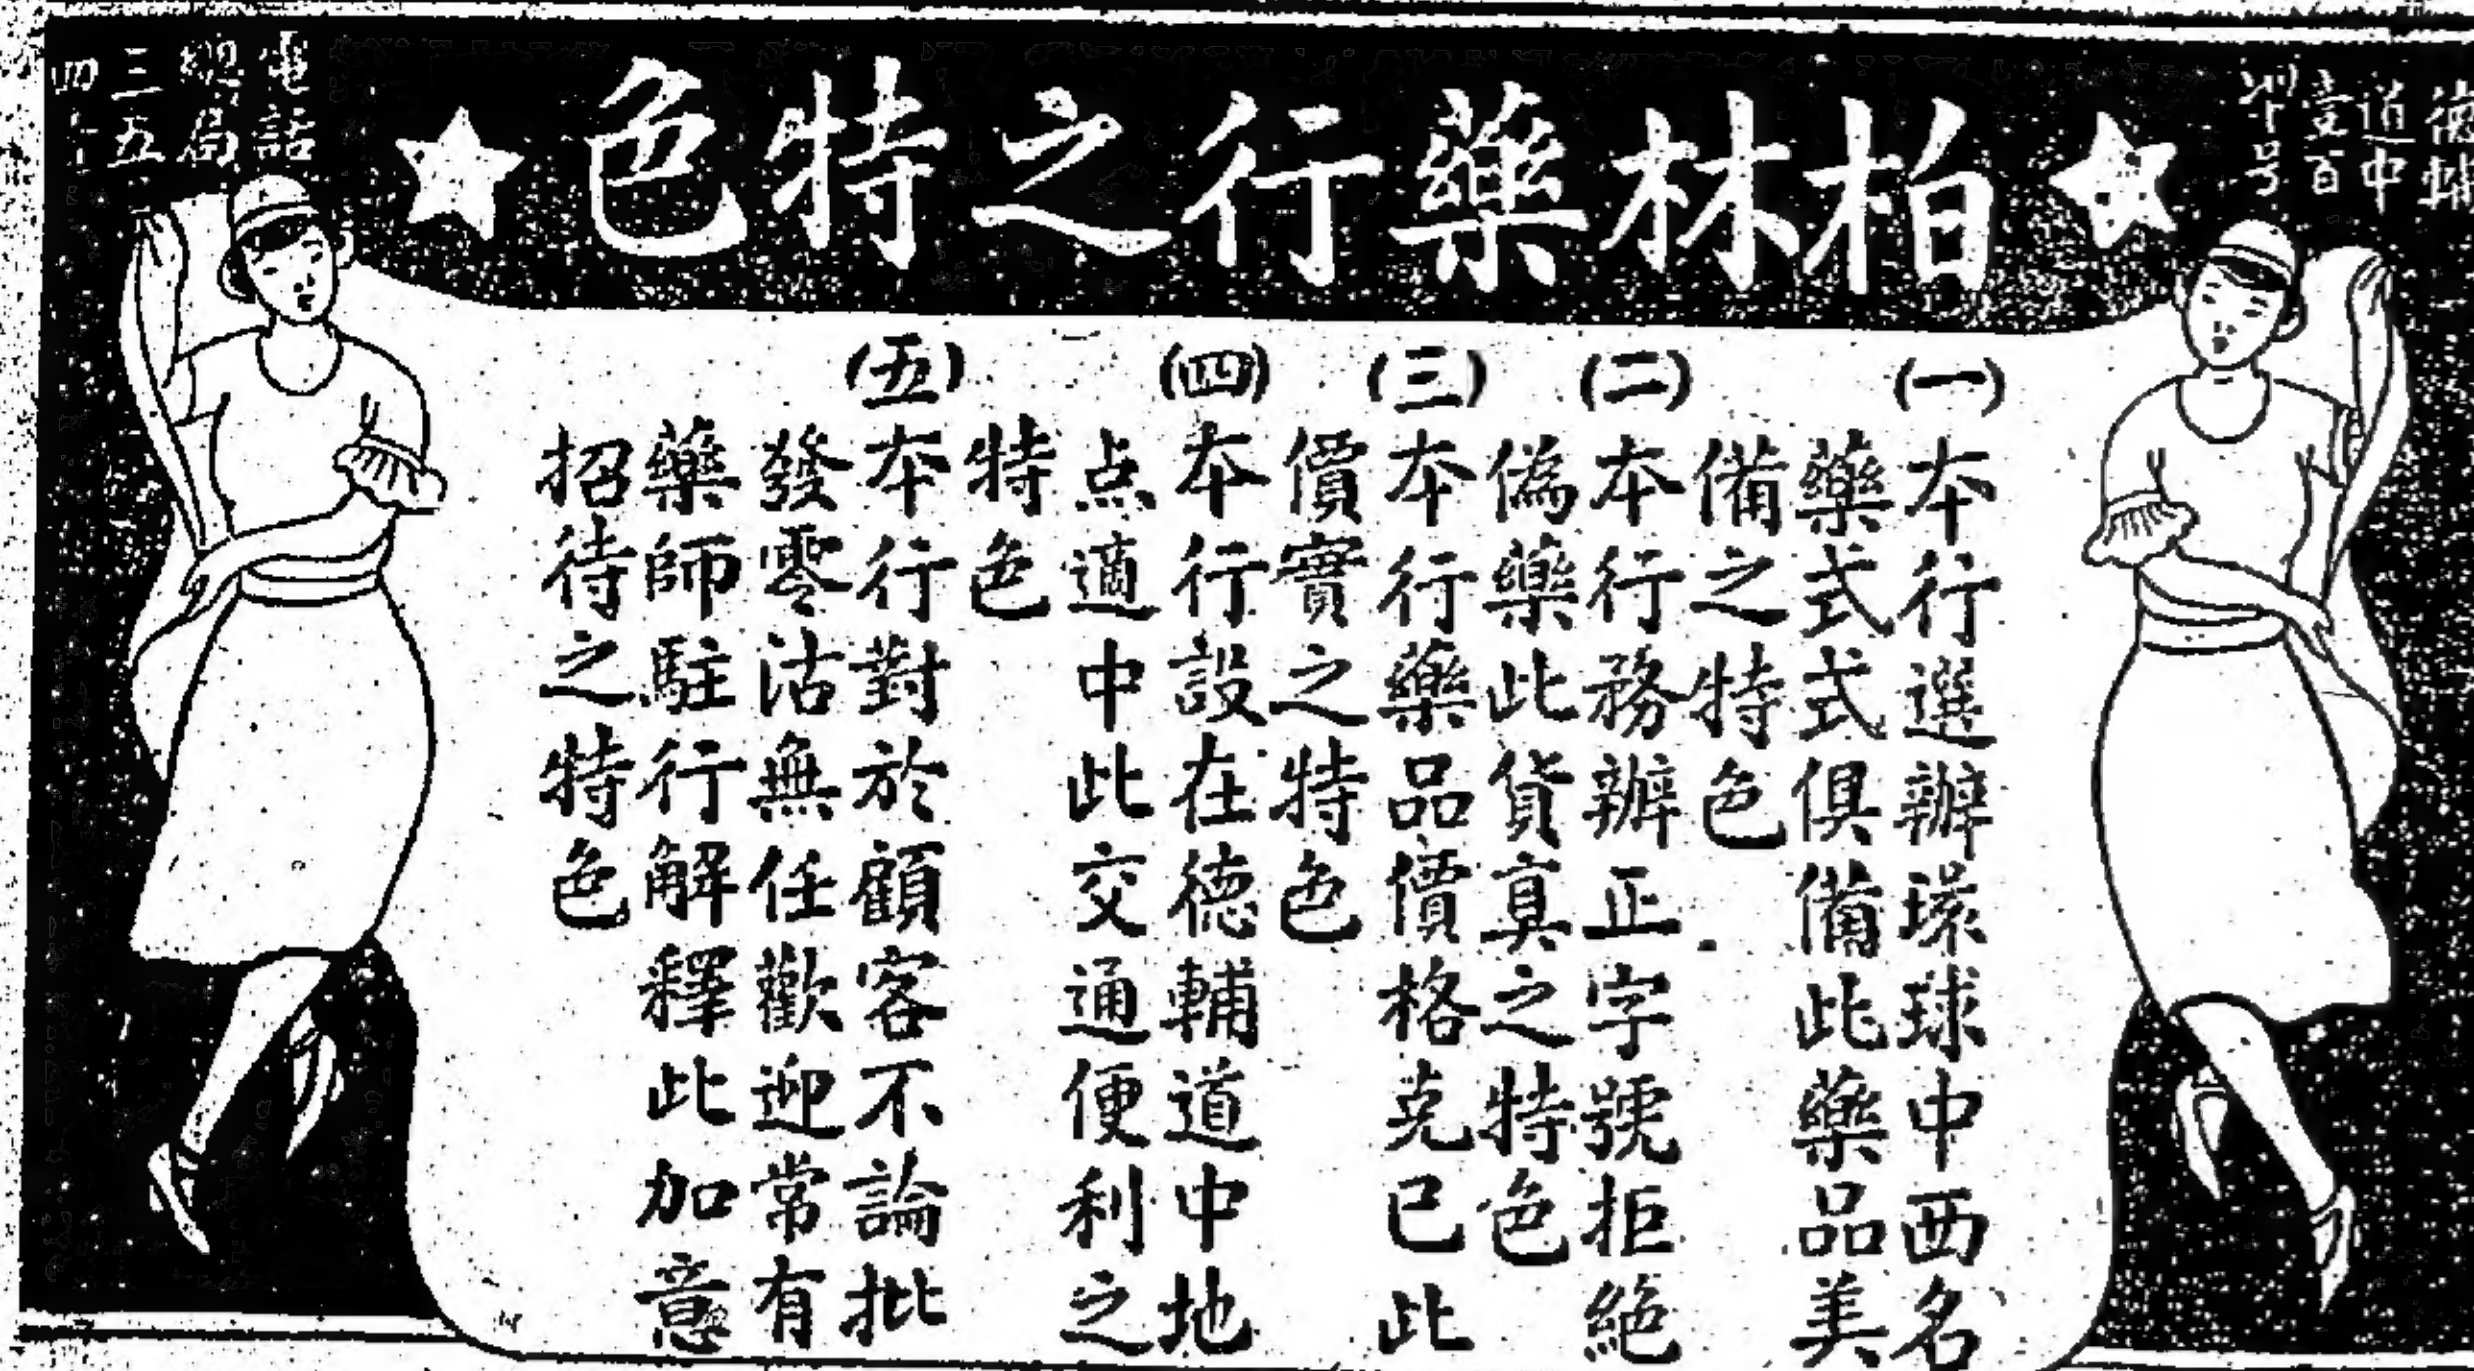 德輔
道中
壹百
柏林藥行之特色
電話
總局
三五
四
(一)本行選辦環球中西名
藥式式俱備此藥品美
備之特色
(二)本行務辦正字號拒絕
偽藥此貨真之特色
(三)本行藥品價格克己此
價實之特色
(四)本行設在德輔道中地
点適中此交通便利之
特色
(五)本行對於顧客不論批
發零沽無任歡迎常有
藥師駐行解釋此加意
招待之特色